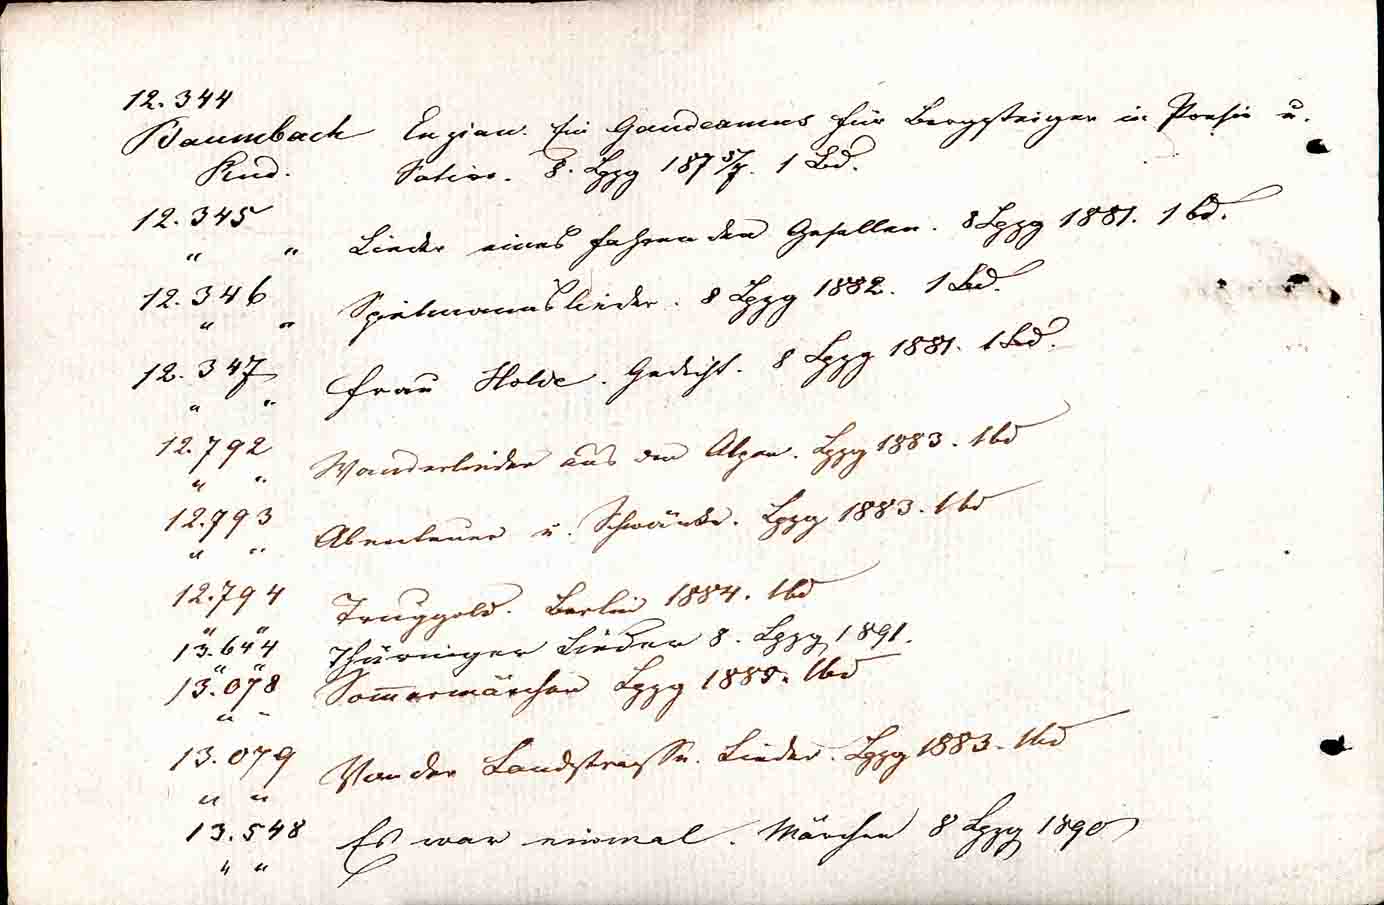 12.344
Baumbach Enzian. Ein Gaudeamus für Bergsteiger in Poesie u.
Rud. Satire. 8. Lpzg 187 1 Bd.
12.345
" " Lieder eines fahrenden Gesellen. 8 Lpzg 1881. 1 bd.
12.346
" " Spielmannslieder. 8 Lpzg 1882. 1 Bd.
12.347
" " Frau Holde. Gedicht. 8 Lpzg 1881. 1 Bd.
12.792
" " Wanderlieder aus den Alpen. Lpzg 1883. 1 bd
12.793
" " Abenteuer u. Schwänke. Lpzg 1883. 1 bd
12.794
" " Truggold. Berlin 1884. 1 bd
13.644
" " Thüringer Lieder 8. Lpzg 1891.
13.078
" " Som̅ermärchen Lpzg 1885. 1 bd
13.079
" " Von der Landstrasse. Lieder. Lpzg 1883. 1 bd
13.548
" " Es war einmal. Märchen 8 Lpzg 1890